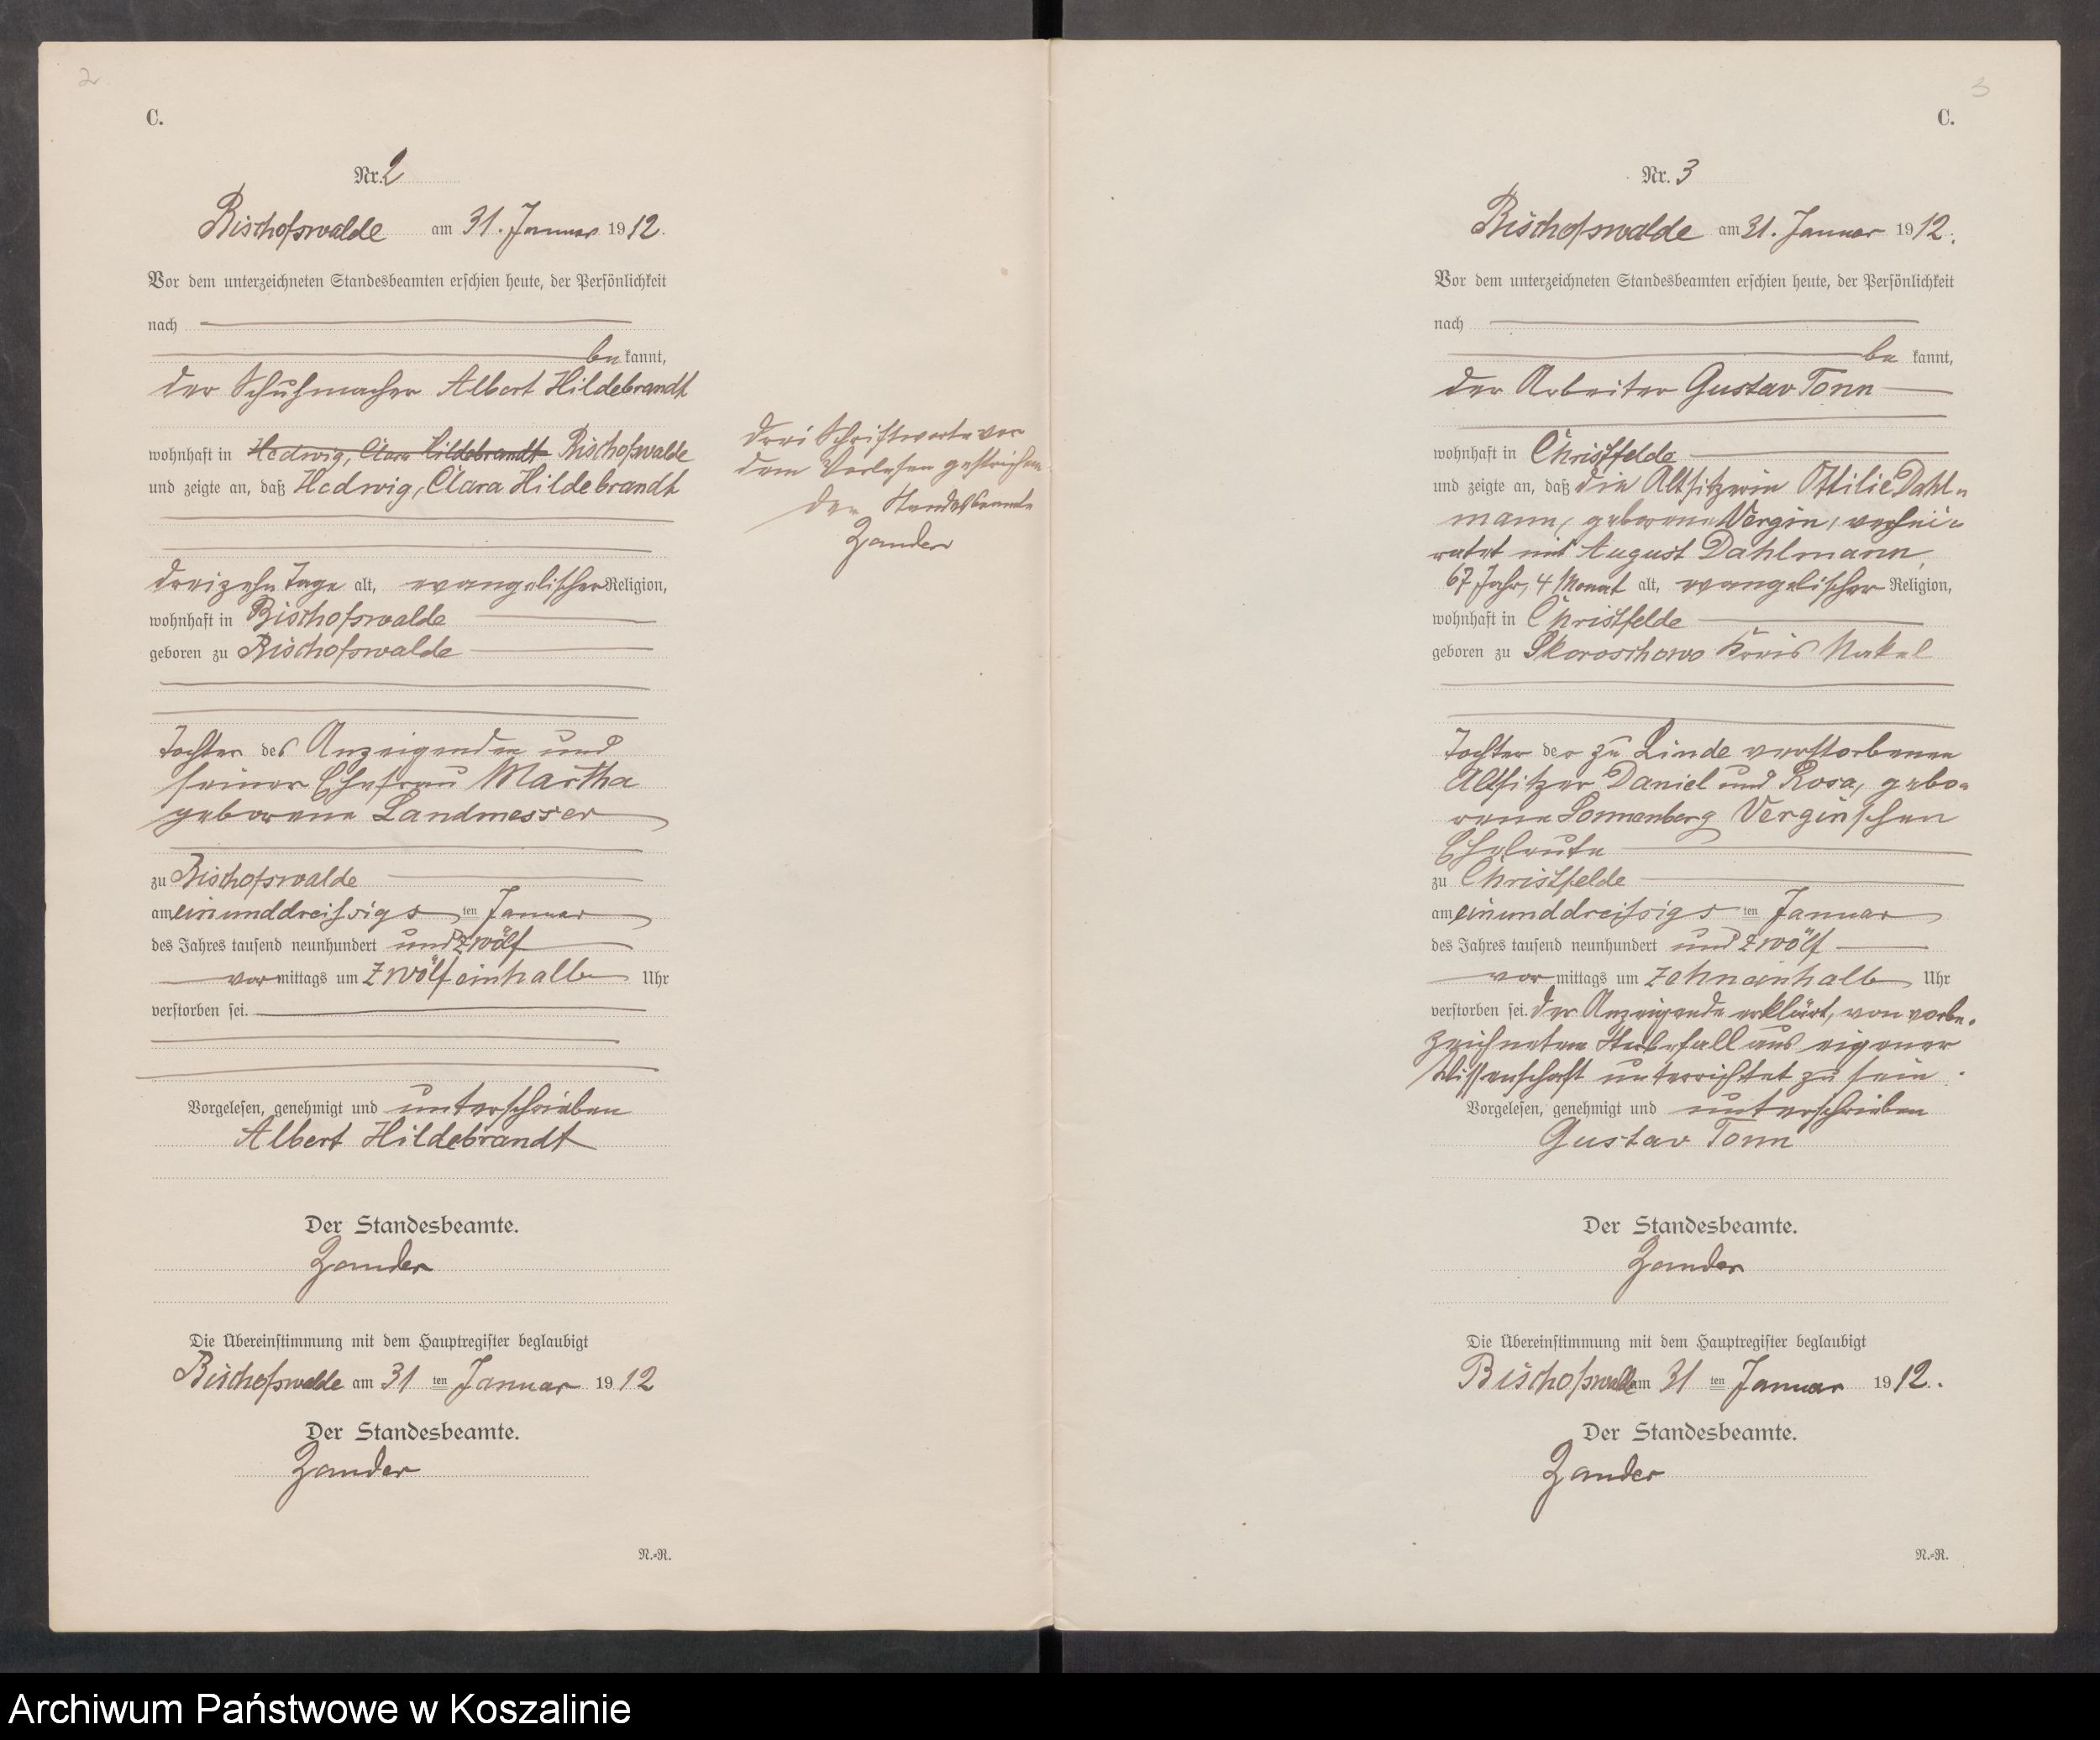 2
C.
Nr. 2
Bischofswalde am 31. Januar 1912.
Vor dem unterzeichneten Standesbeamten erschien heute, der Persönlichkeit
nach
be kannt,
der Schuhmacher Albert Hildebrandt
wohnhaft in Hedwig, Clara Hildebrandt Bischofswalde
und zeigte an, daß Hedwig, Clara Hildebrandt
dreizehn Tage alt, evangelischer Religion,
wohnhaft in Bischofswalde
geboren zu Bischofswalde
Tochter des Anzeigenden und
seiner Ehefrau Martha
geborene Landmesser
zu Bischofswalde
am einunddreißigsten Januar
des Jahres tausend neunhundert und zwölf
vormittags um zwölfeinhalb Uhr
verstorben sei.
Vorgelesen, genehmigt und unterschrieben
Albert Hildebrandt
Der Standesbeamte.
Zander
Die Übereinstimmung mit dem Hauptregister beglaubigt
Bischofswalde am 31 ten Januar 1912
Der Standesbeamte.
Zander
N.=R.
Drei Schriftworte vor
dem Vorlesen gestrichen
Der Standesbeamte
Zander
3
C.
Nr. 3
Bischofswalde am 31. Januar 1912.
Vor dem unterzeichneten Standesbeamten erschien heute, der Persönlichkeit
nach
be kannt,
der Arbeiter Gustav Tonn
wohnhaft in Christfelde
und zeigte an, daß die Altsitzerin Ottilie Dahl=
mann, geborene Vergin, verhei=
ratet mit August Dahlmann,
67 Jahr, 4 Monat alt, evangelischer Religion,
wohnhaft in Christfelde
geboren zu Skoroschowo Kreis Nakel
Tochter der zu Linde verstorbenen
Altsitzer Daniel und Rosa, gebo=
rene Sonnenberg Vergin'schen
Eheleute
zu Christfelde
am einunddreißigsten Januar
des Jahres tausend neunhundert und zwölf
vormittags um zehneinhalb Uhr
verstorben sei. Der Anzeigende erklärt, von vorbe=
zeichneten Sterbefall aus eigener
Wissenschaft unterrichtet zu sein.
Vorgelesen, genehmigt und unterschrieben
Gustav Tonn
Der Standesbeamte.
Zander
Die Übereinstimmung mit dem Hauptregister beglaubigt
Bischofswalde am 31 ten Januar 1912.
Der Standesbeamte.
Zander
N.=R.
Archiwum Państwowe w Koszalinie